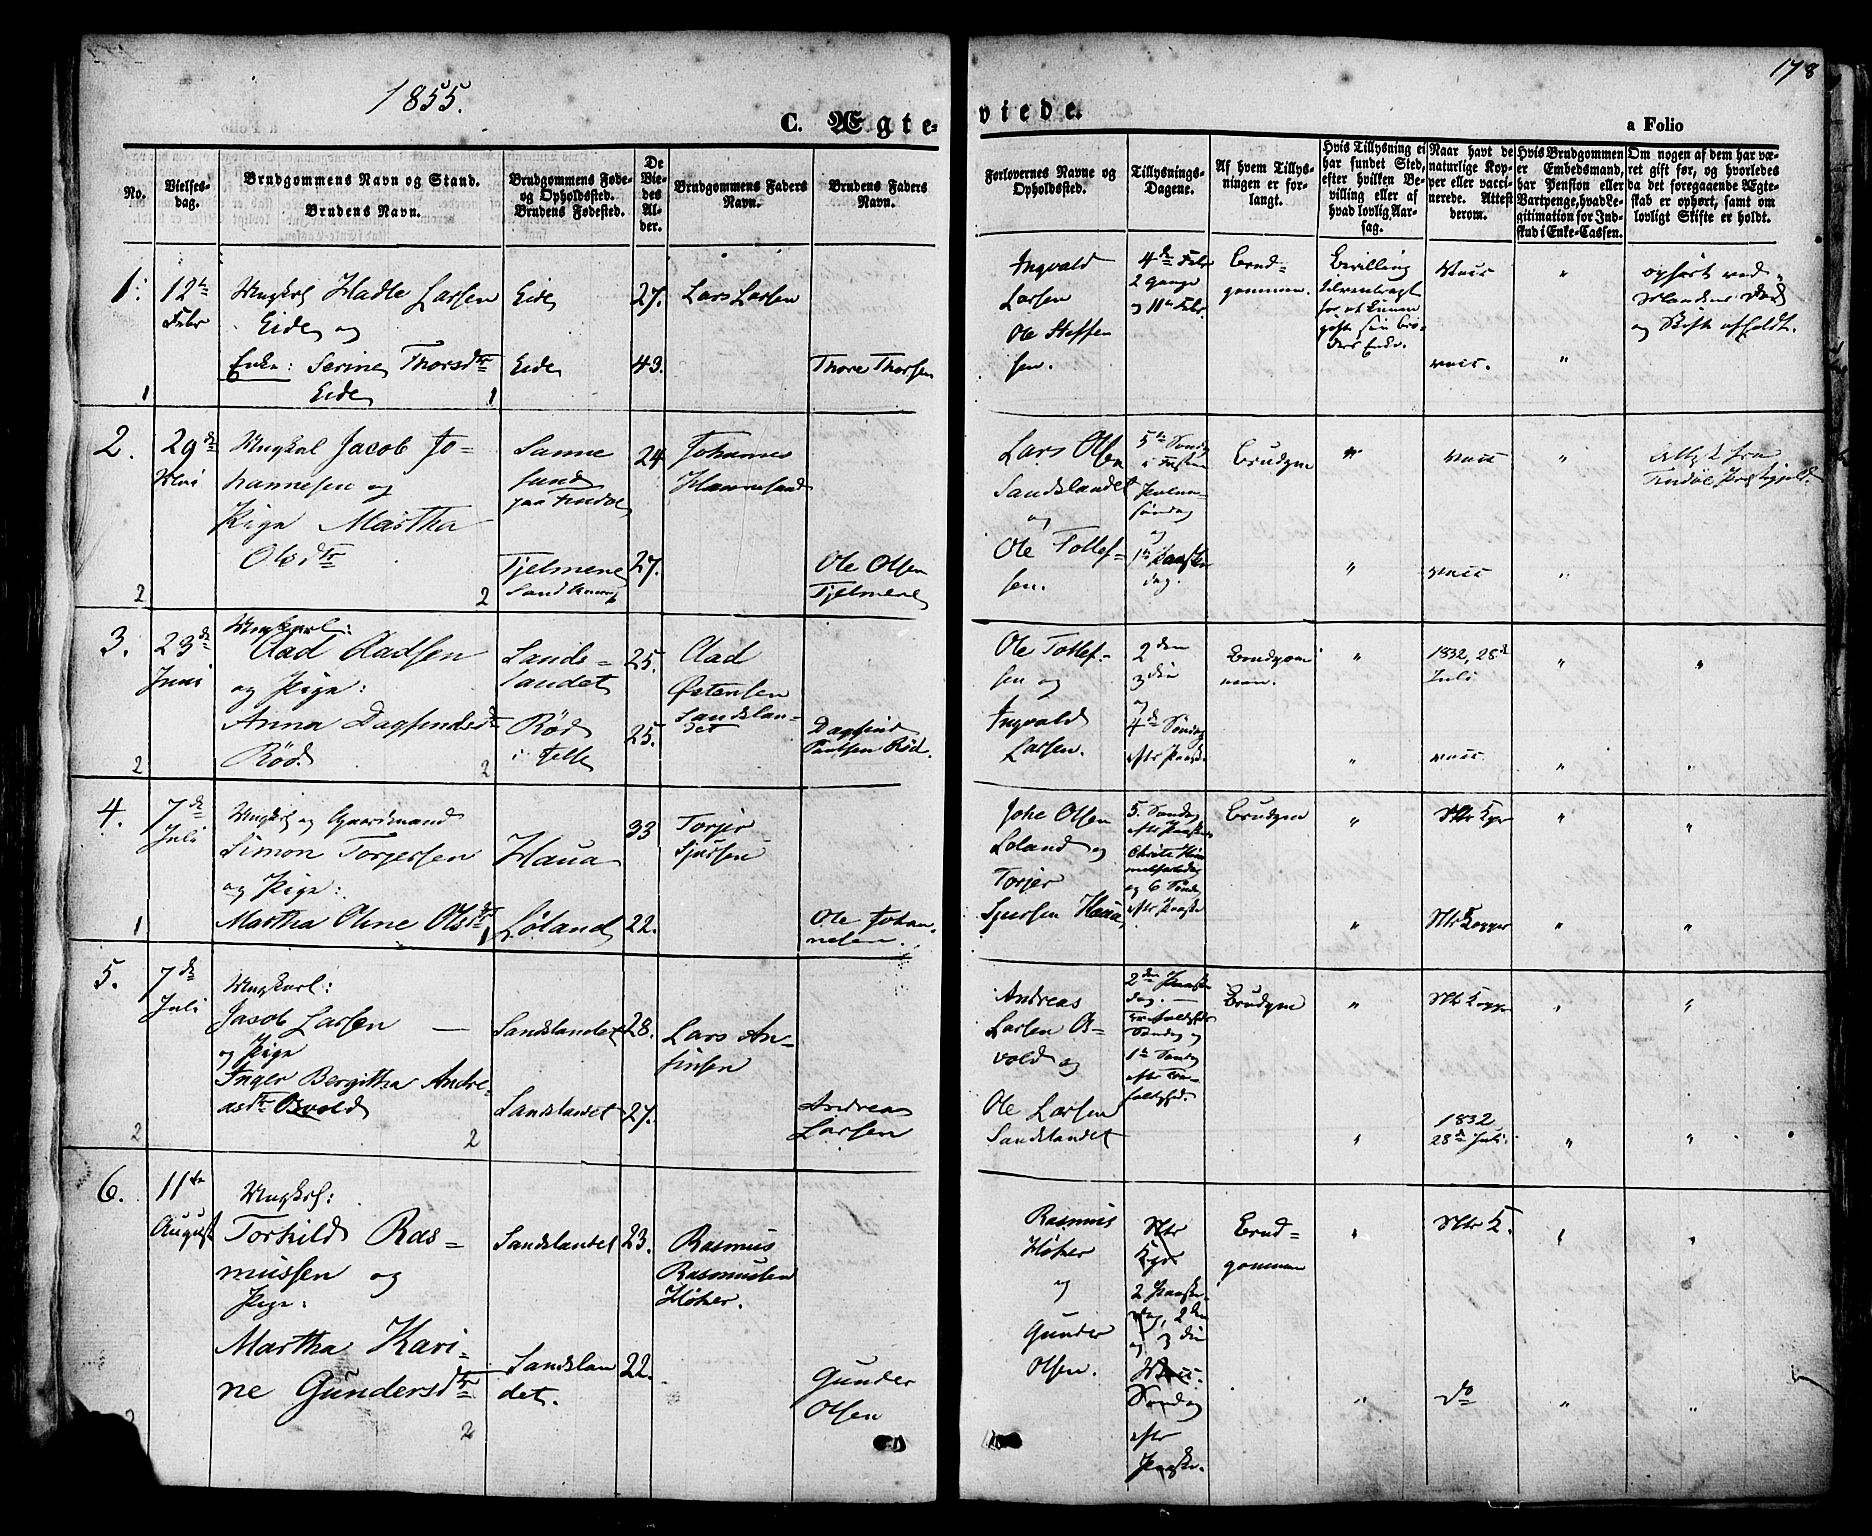 1855.
178
C. Ægte-
viede.
a Folio
No.
Vielses-
dag.
Brudgommens Navn og Stand.
Brudens Navn.
Brudgommens Føde-
og Opholdssted.
Brudens Fødested.
De
Vie-
des
Al-
der.
Brudgommens Faders
Navn.
Brudens Faders
Navn.
Forlovernes Navne og
Opholdssted.
Tillysnings-
Dagene.
Af hvem Tillys-
ningen er for-
langt.
Hvis Tillysning ei
har fundet Sted,
efter hvilken Be-
villing eller af
hvad lovlig Aar-
sag.
Naar havt de
naturlige Kop-
per eller vacci-
nerede. Attest
derom.
Hvis Brudgommen
er Embedsmand,
har Pension eller
Vartpenge, hvad Le-
gitimation for Ind-
skud i Enke-Cassen.
Om nogen af dem har væ-
ret gift før, og hvorledes
da det foregaaende Ægte-
skab er ophørt, samt om
lovligt Skifte er holdt.
1.
12te
Febr
Ungkrl Hadle Larsen
Eide og
Enke: Serine Thorsdtr
Eide
Eide
Eide
27.
43.
Lars Larsen
Thore Thorsen
Ingvald
Larsen
Ole Steffen
sen.
4de Febr
2 Gange
og 11te Febr.
Brud-
gommen.
Bevilling
for at kunne
gifte sin Bro-
ders Enke.
vacc
vacc.
ophørt ved
og Skifte afholdt.
2.
29de
Mai
Ungkal Jacob Jo-
hannesen og
Pige Martha
Olsdtr
sund
paa Findøe
Tjelmene
24
27.
Johannes
Ole Olsen
Tjelmene
Lars Olsen
Sandslandet
og
Ole Tollef-
sen.
5te Sønd
i Fasten
Palme-
søndag
og
1te Paaske
dag.
Brudgm
vacc
vacc
3.
23de
Juni
Ungkarl:
Aad Aadsen
og Pige:
Anna Dagfindsdtr
Rød
Sands-
landet
Rød
i Felle
25.
25.
Aad
Østensen
Sandslan-
det
Dagfind
Paulsen Rød.
Ole Tollef-
sen og
Ingvald
Larsen.
2den
3die
og
4de Søndag
efter Paaske.
Brudgom
men.
1832, 28de
Juli
vacc
4.
7de
Juli
Ungkrl og Gaardmand
Simon Torjersen
og Pige:
Martha Oline Olsdtr
Haua
Løland
33
22.
Torjer
Sjursen
Ole Johan-
nesen.
Johe Olsen
Loland og
Torjer
Sjursen Haua
5. Søndag
efter Paaske
Christi Him
melfartsdag
og 6 Sønd
efter Paaske
Brudgm
Ntr Kopper
5.
7de
Juli
Ungkarl:
Jacob Larsen
og Pige
Inger Bergitha Andre-
asdtr Osvold
Sandslandet
Sandslandet
28.
27.
Lars An-
finsen
Andreas
Larsen
Andreas
Larsen Os-
vold og
Ole Larsen
Sandslandet
2den Paaske
dag.
Søndag og
1te Søndag
efter Tre-
foldighed.
Brudgm
Ntr Kopper
1832
28de Juli.
6.
11te
August
Ungkrl:
Torkild Ras-
mussen og
Pige:
Martha Kari-
ne Gundersdtr
Sandslandet
Sandslan
det.
23.
22.
Rasmus
Rasmussen
Høker.
Gunder
Olsen
Rasmus
Høker
og
Gunder
Olsen.
Ntr
Kpr
2 Paaske-
dag, 2den
og 3die
Søndag
efter
Paaske.
Brud-
gommen
Ntr K.
do